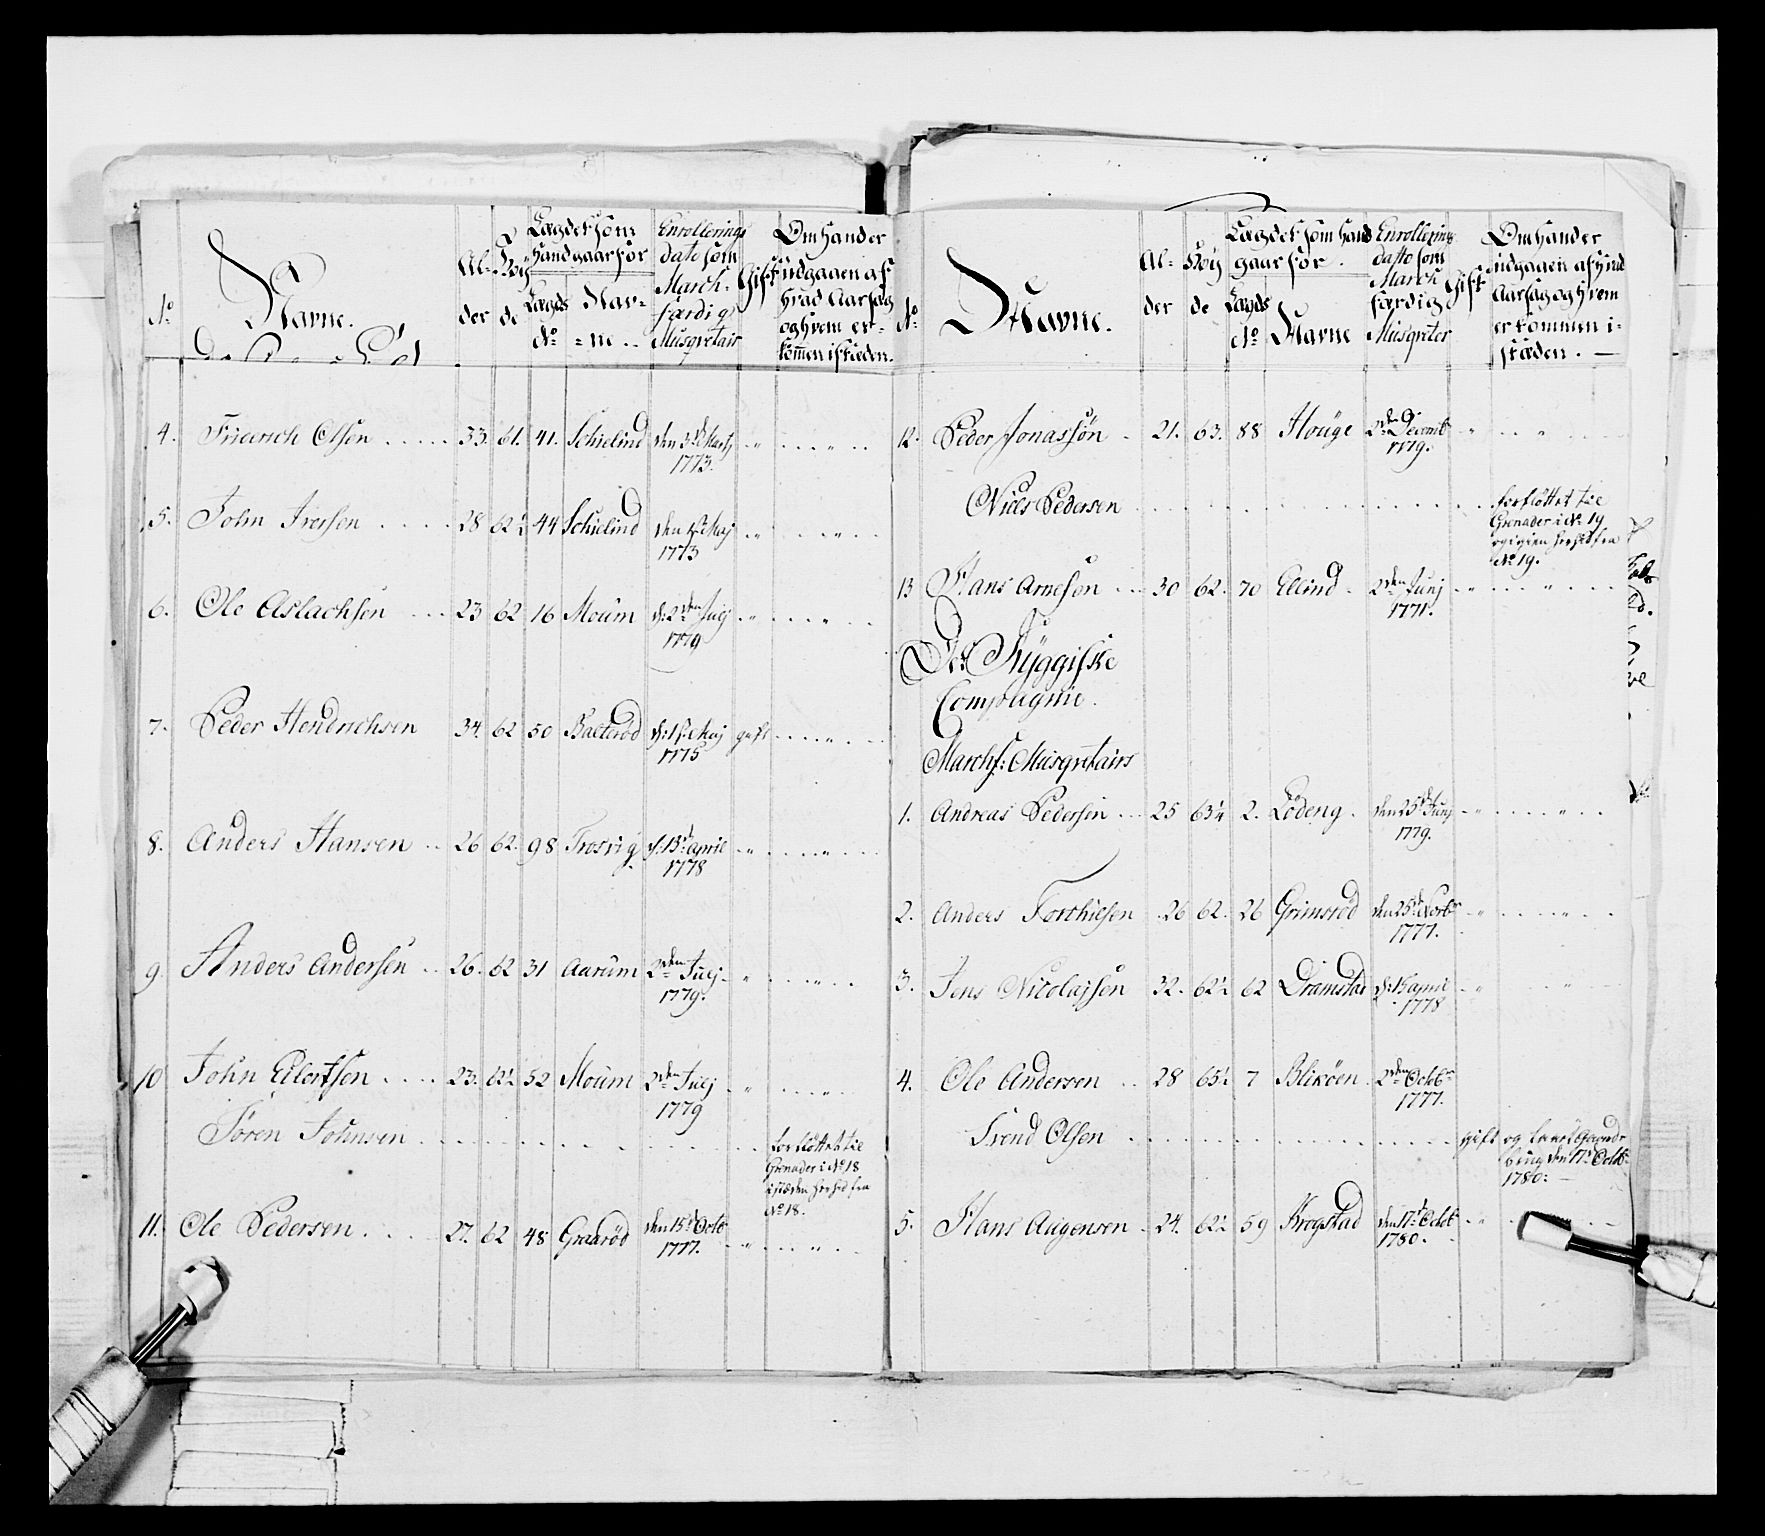 No
Navne.
Al-
der
Höÿ
de
Lægdet som
Hand gaar for
Lægds
No
Nav-
=ne..
Enrollerings
dato som
March-
færdig
Musqvetair
Gift
Om Hand er
udgaaen af
hvad Aarsag
og hvem er-
kommen i stæden.
4. Friedrich Olsen ..... 33. 61. 41. Schielind den 3de Martj
1773.
5. John Iversen .... 28 62½ 44 Schielind den 1ste Maj
1773
6. Ole Aslachsen ... 23 62 16 Moum d: 2den Julj
1779
7. Peder Hendrichsen 34. 62 50 Balterød d: 1ste Maj gift
1775
8. Anders Hansen .. 26 62. 98 Trosvig d: 13de april
1778
9. Anders Andersen .. 26. 62 31 Aarum 2den Julj
1779.
10 John Eilertsen .... 23. 62½ 52 Moum 2den Julj
1779
Søren Johnsen ..... forflöttet til
Grenader i No 18
istæden herhid fra
No 18.
11. Ole Pedersen .... 27. 62 48 Graarød den 15de Octb
1777.
No
Navne.
Al-
der
Höÿ
de
Lægdet som Hand
gaar for.
Lægds
No
Navne
Enrollering
datto som
March
færdig
Musqveter
Gift
Om Hand er
udgaaen af hvad
Aarsag og hvem
er kommen i-
stæden. —
12. Peder Jonassøn . 21. 63. 88 Houge 2den Decemb
1779.
Niels Pedersen ..... forflöttet til
Grenader i No 19
og igien herhid fra
No 19.
13 Hans Arnesøn ... 30 62. 70 Elind. 2den Junj
1771.
Det Ryggiske
Compagnie.
Marchf: Musqvetairs
1. Andreas Pedersen ... 25 63¼ 2. Lödeng. den 25de Junj
1779.
2. Anders Torchielsen 26 62. 26 Grimsrød den 25de Novbr
1777.
3. Jens Nicolajsen 32. 62½ 62 Dramstad d: 13 april
1778
4. Ole Andersen .. 28 65½ 7 Blixöen. 2den Octobr
1777.
Trond Olsen ..... gift og faaet Gaardz
brug den 17de Octb
1780. —
5. Hans Augensen . 24. 62½ 59 Krogstad den 17de Octob
1780.